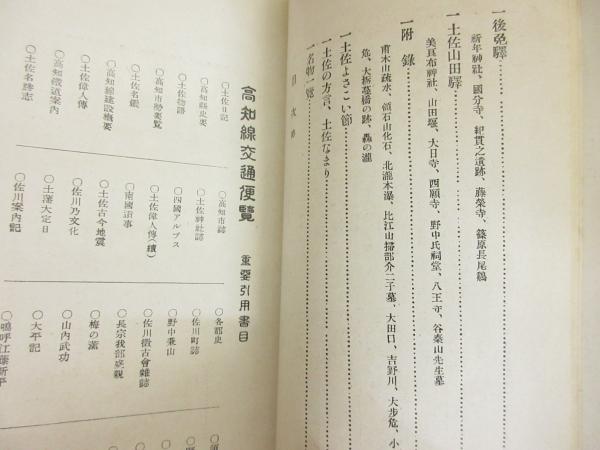 一後免驛
新年神社、國分寺、紀貫之遺跡、藤榮寺、篠原長尾鷄
一土佐山田驛
美良布神社、山田堰、大日寺、西願寺、野中氏祠堂、八王寺、谷秦山先生墓
一附錄
甫木山疏水、領石山化石、北瀧本瀑、比江山掃部介二子墓、大田口、吉野川、大步危、小
危、大栃墓橋の跡、轟の瀧
一土佐よさこい節
一土佐の方言、土佐なまり
一名物一覽
目次終
高知線交通便覽 重要引用書目
○土佐日記
○高知市誌
○各郡史
○高知縣史要
○土佐神社誌
○佐川町誌
○土佐物語
○四國アルプス
○野中兼山
○高知市勢要覽
○土佐偉人傳(續)
○佐川徵古會雜誌
○土佐名鑑
○南國遺事
○長宗我部盛親
○高知線建設概要
○土佐古今地震
○梅の薰
○土佐偉人傳
○佐川乃文化
○山內武功
○高知鐵道案內
○土藩大定目
○大平記
○土佐名勝志
○佐川案內記
○嗚呼江藤新平